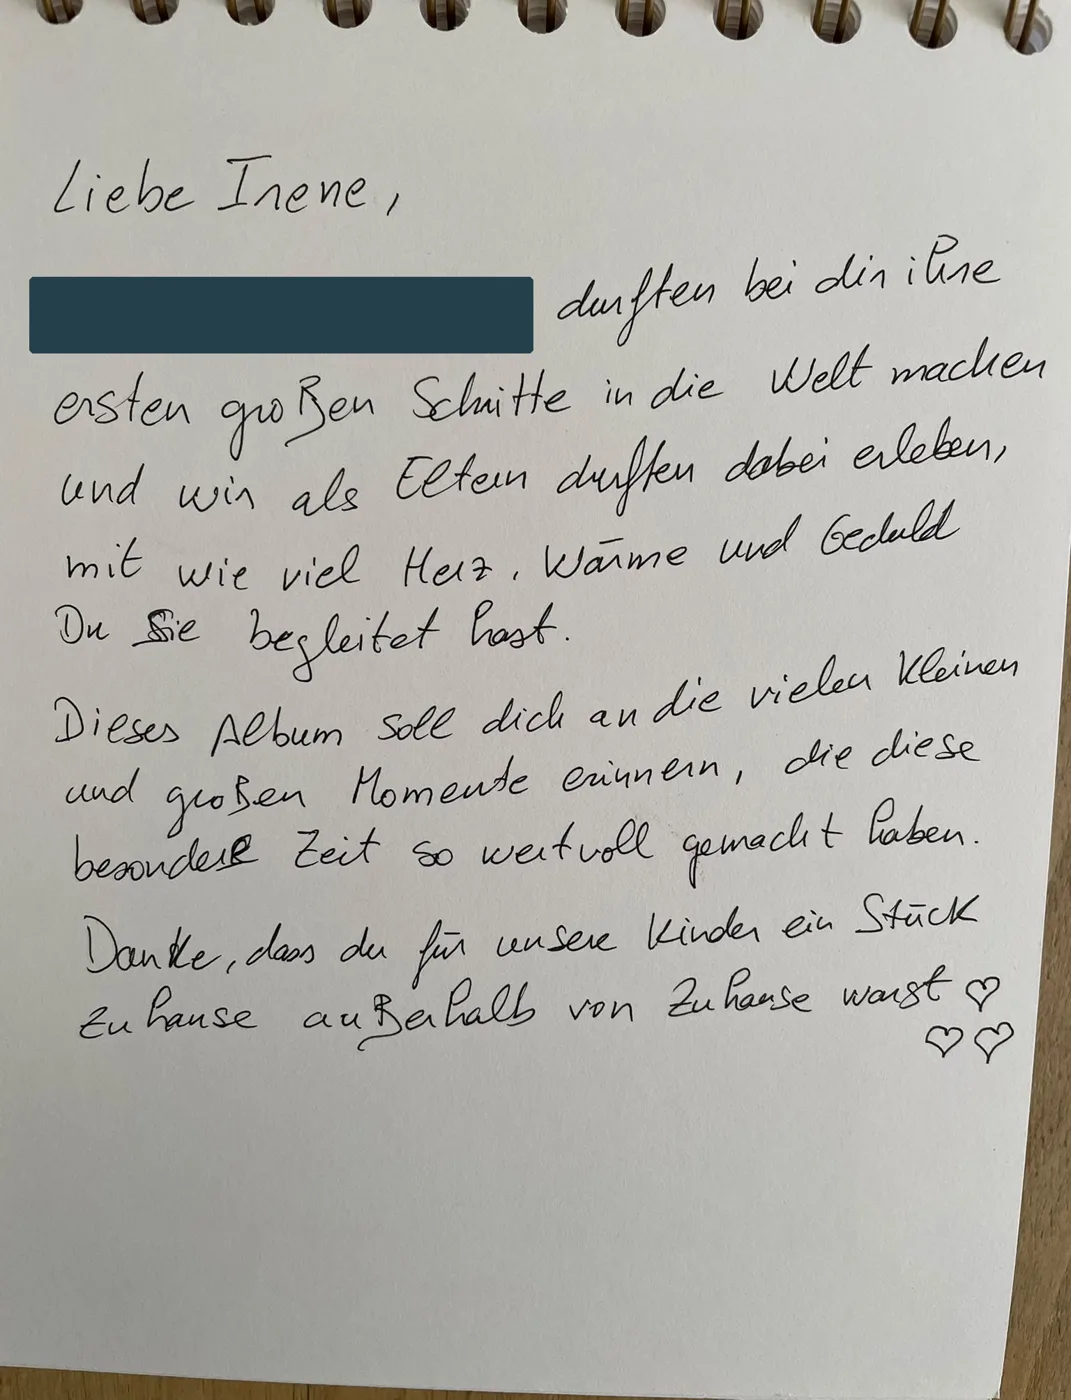 Liebe Irene,
durften bei dir ihre
ersten großen Schritte in die Welt machen
und wir als Eltern durften dabei erleben,
mit wie viel Herz, Wärme und Geduld
Du Sie begleitet hast.
Dieses Album soll dich an die vielen kleinen
und großen Momente erinnern, die diese
besondere Zeit so wertvoll gemacht haben.
Danke, dass du für unsere Kinder ein Stück
zuhause außerhalb von Zuhause warst ♡
♡♡